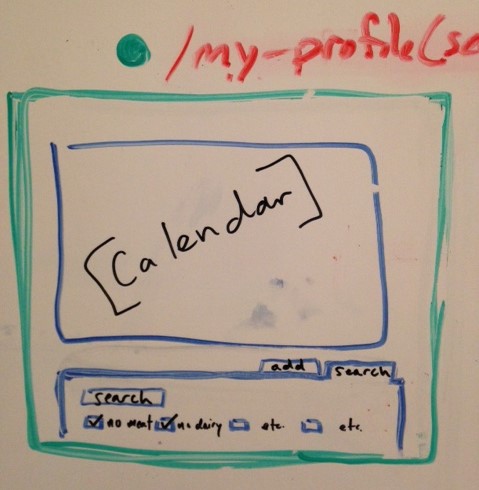 /my-profile(sc
[Calendar]
add search
search
no meat no dairy etc. etc.